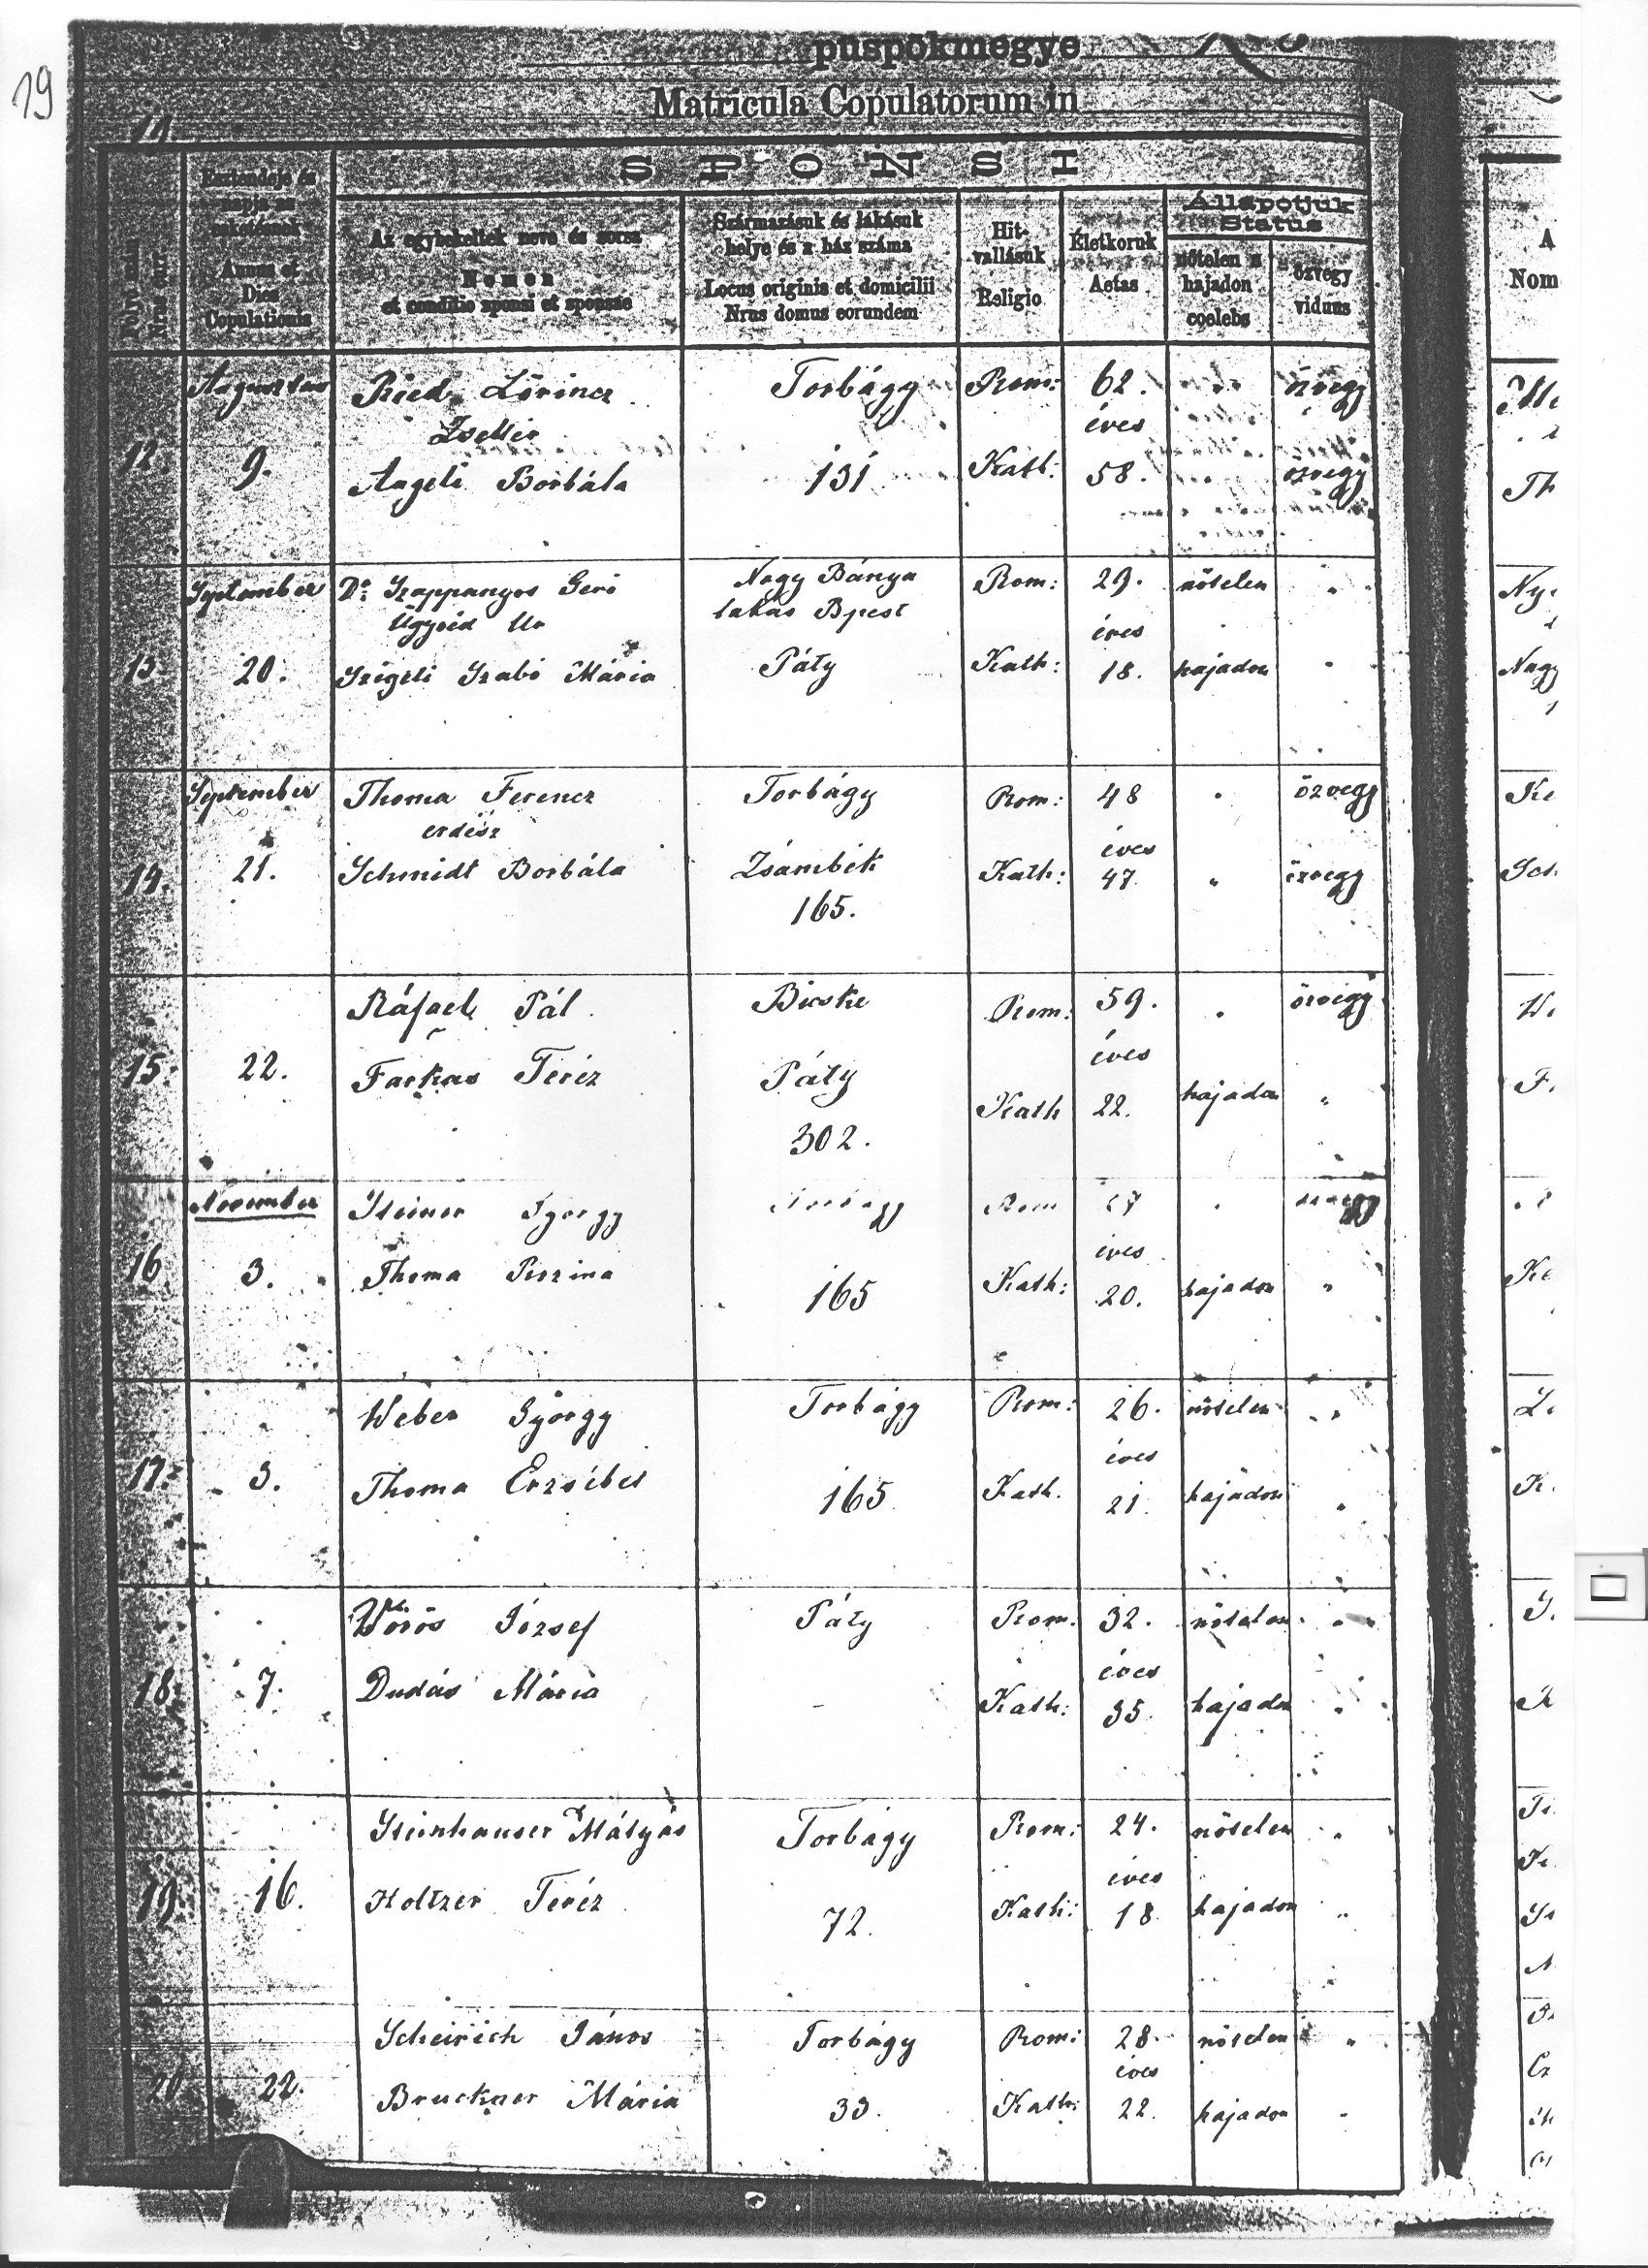 19
püspökmegye
Matricula Copulatorum in
SPONSI
Esztendeje és
napja az
esketésnek
Annus et
Dies
Copulationis
Az egybekeltek neve és sorsa
Nomen
et conditio sponsi et sponsae
Származásuk és lakásuk
helye és a ház száma
Locus originis et domicilii
Nrus domus eorundem
Hit-
vallásuk
Religio
Életkoruk
Aetas
Állapotjuk
Status
nőtelen s
hajadon
coelebs
özvegy
viduus
A
Nom
Augustus Ried Lőrincz Torbágy Rom: 62. özvegy
Zsellér éves
12. 9. Angeli Borbála 131 Kath: 58. " özvegy
September Dr. Szappanyos Gerő Nagy Bánya Rom: 29. nőtelen "
Ügyvéd Úr lakás Bpest éves
13. 20. Szigeti Szabó Mária Páty Kath: 18. hajadon "
September Thoma Ferencz Torbágy Rom: 48 " özvegy
erdész éves
14. 21. Schmidt Borbála Zsámbék Kath: 47. " özvegy
165.
Ráfael Pál Bicske Rom: 59. " özvegy
éves
15. 22. Farkas Teréz Páty Kath 22. hajadon "
302.
November Steiner György Rom " özvegy
éves
16 3. Thoma 165 Kath: 20. hajadon "
Weber György Torbágy Rom: 26. nőtelen "
éves
17. 3. Thoma Erzsébet 165 Kath. 21. hajadon "
Vörös József Páty Rom: 32. nőtelen "
éves
18. 7. Dudás Mária - Kath: 35. hajadon "
Steinhauser Mátyás Torbágy Rom: 24. nőtelen "
éves
19. 16. Holtzer Teréz 72. Kath: 18. hajadon "
Scheirich János Torbágy Rom: 28. nőtelen "
éves
20. 22. Bruckner Mária 33. Kath: 22. hajadon "